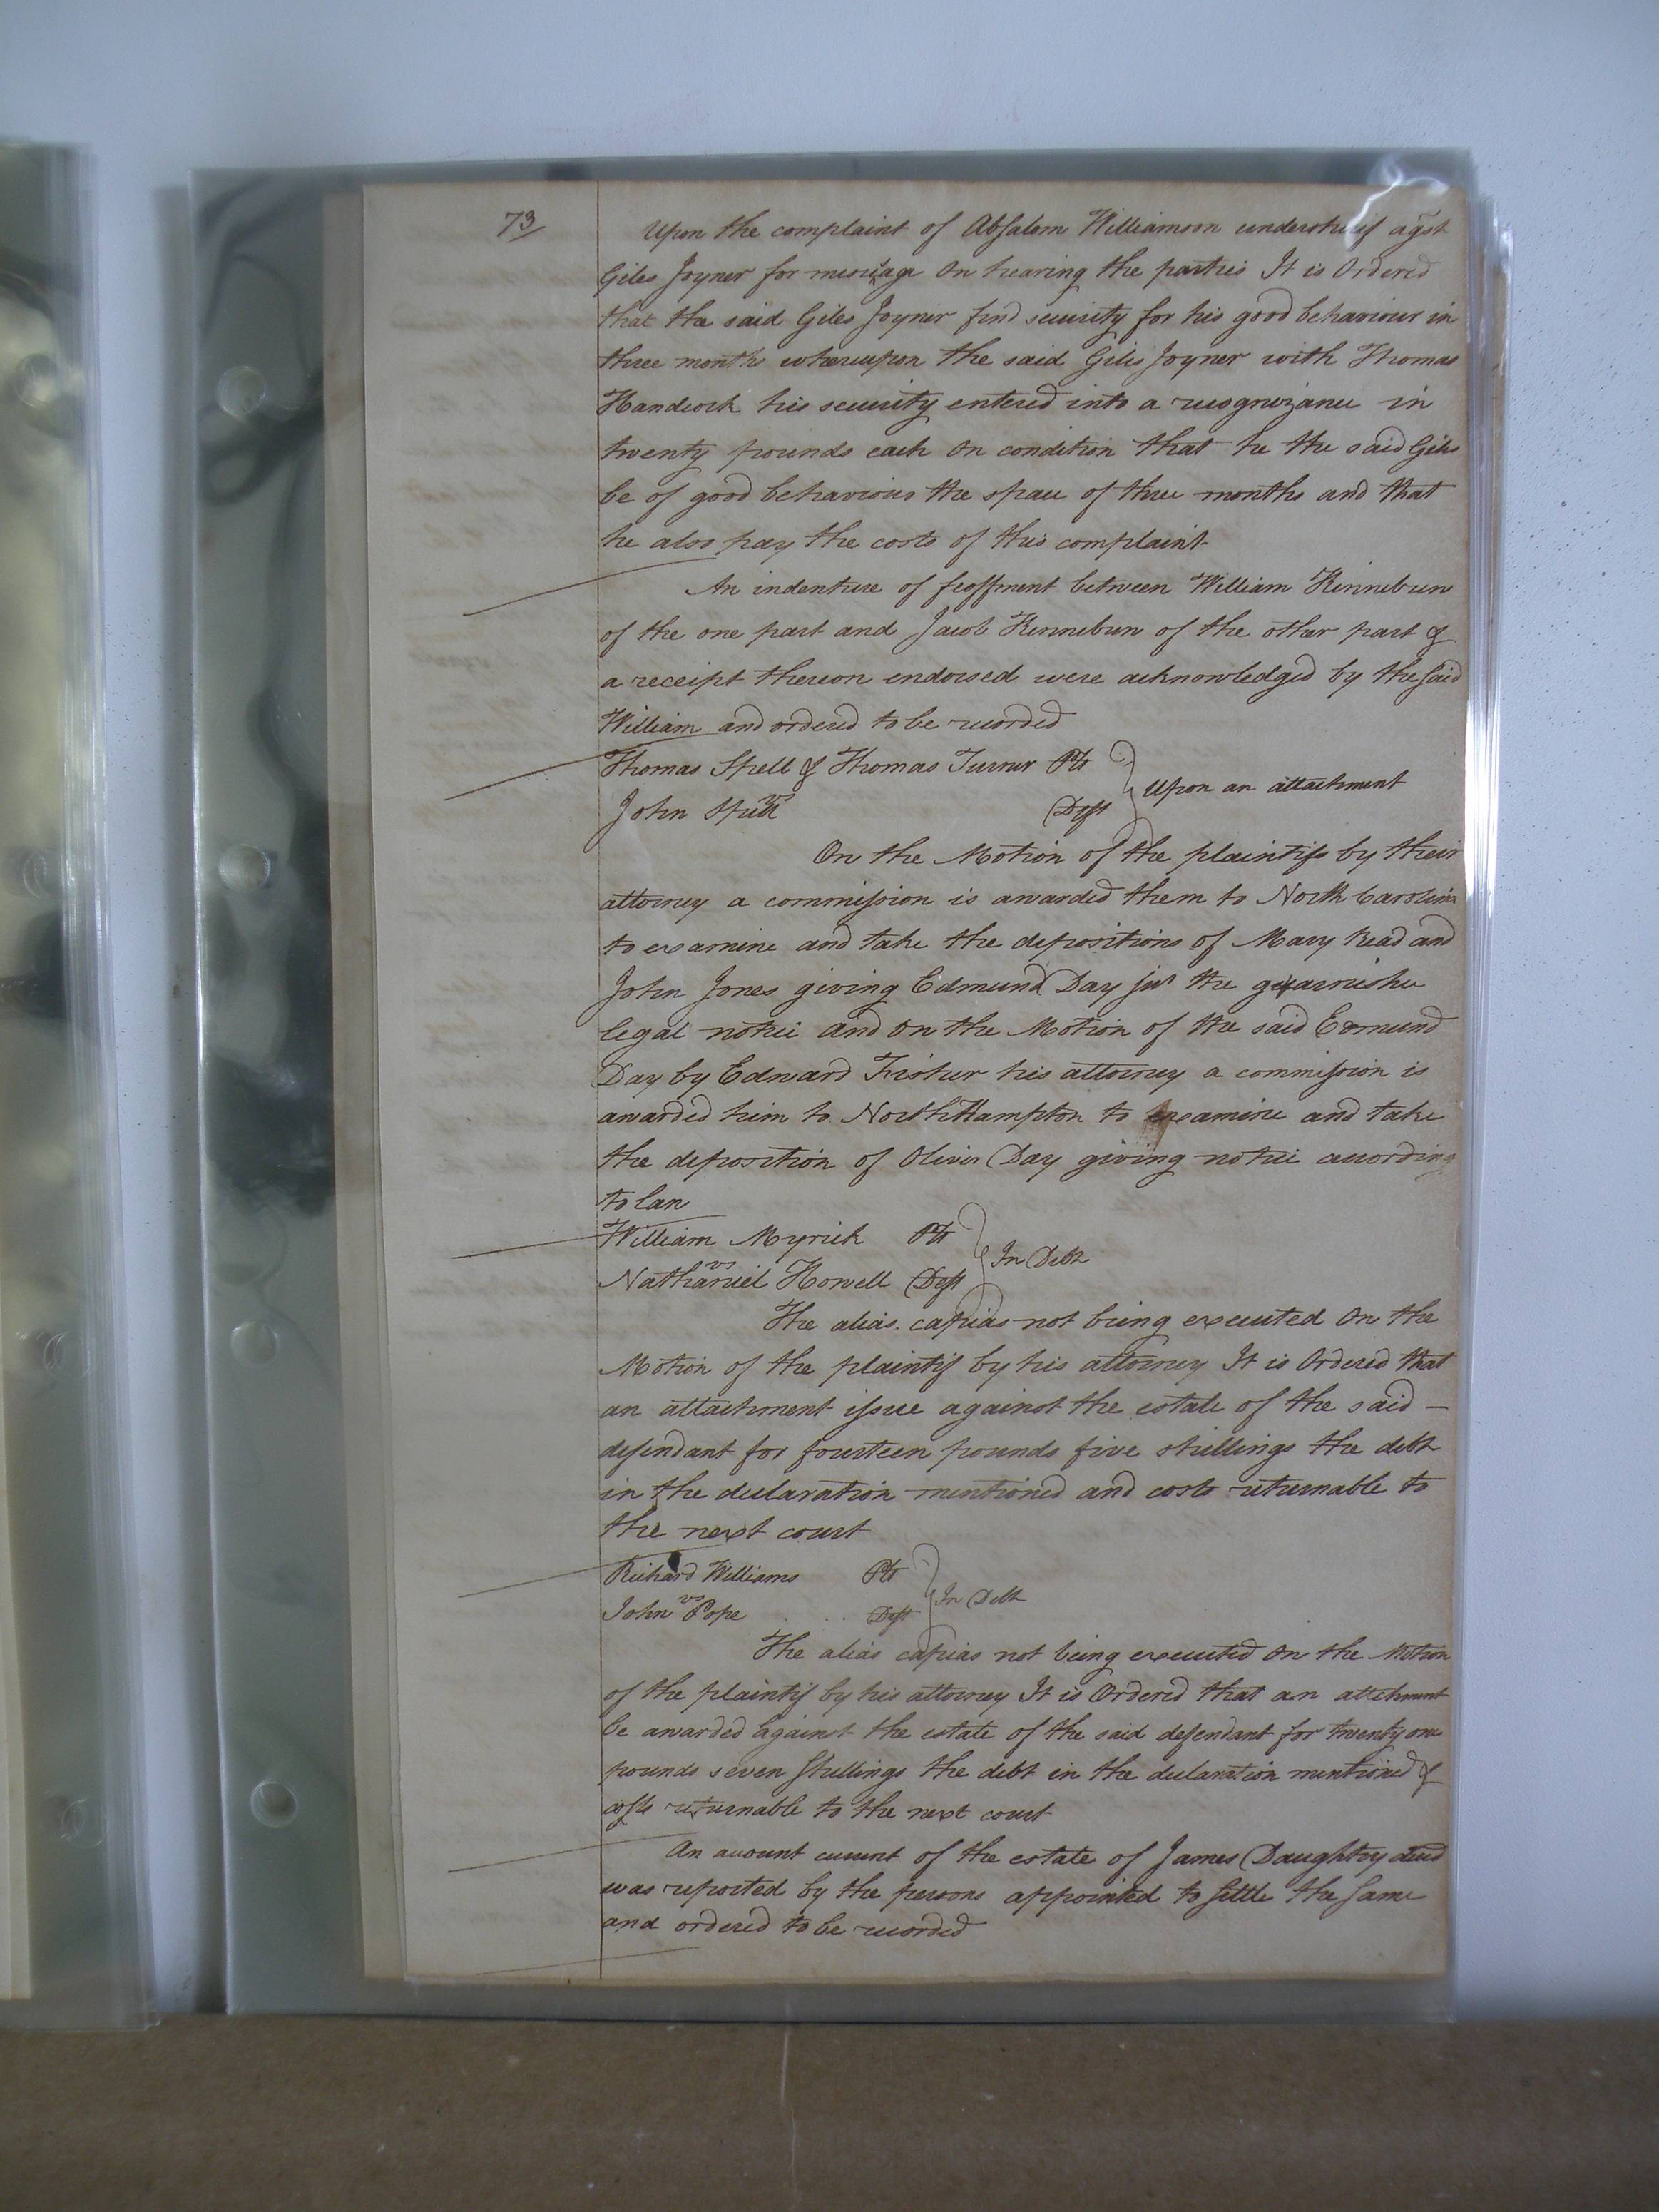 73
Upon the complaint of Absalom Williamson undersherif agst
Giles Joyner for On hearing the parties It is Ordered
that the said Giles Joyner find security for his good behaviour in
three months whereupon the said Giles Joyner with Thomas
Handcock his security entered into a recognizance in
twenty pounds each on condition that he the said Giles
be of good behaviour the space of three months and that
he also pay the costs of this complaint
An indenture of feoffment between William Kinnebrew
of the one part and Jacob Kinnebrew of the other part &
a receipt thereon endorsed were acknowledged by the said
William and ordered to be recorded
Thomas Spell & Thomas Turner Plt
vs } Upon an attachment
John Spell Deft
On the Motion of the plaintifs by their
attorney a commission is awarded them to North Carolina
to examine and take the depositions of Mary Read and
John Jones giving Edmund Day junr the garnishee
legal notice and on the Motion of the said Edmund
Day by Edward Fisher his attorney a commission is
awarded him to NorthHampton to examine and take
the deposition of Oliver Day giving notice according
to law
William Myrick Plt
vs } In Debt
Nathaniel Howell Deft
The alias capias not being executed On the
Motion of the plaintif by his attorney It is Ordered that
an attachment issue against the estate of the said -
defendant for fourteen pounds five shillings the debt
in the declaration mentioned and costs returnable to
the next court
Richard Williams Plt
vs } In Debt
John Pope . . . Deft
The alias capias not being executed On the Motion
of the plaintif by his attorney It is Ordered that an attachment
be awarded against the estate of the said defendant for twenty one
pounds seven shillings the debt in the declaration mentioned &
costs returnable to the next court
An account current of the estate of James Daughtry decd
was reported by the persons appointed to settle the same
and ordered to be recorded